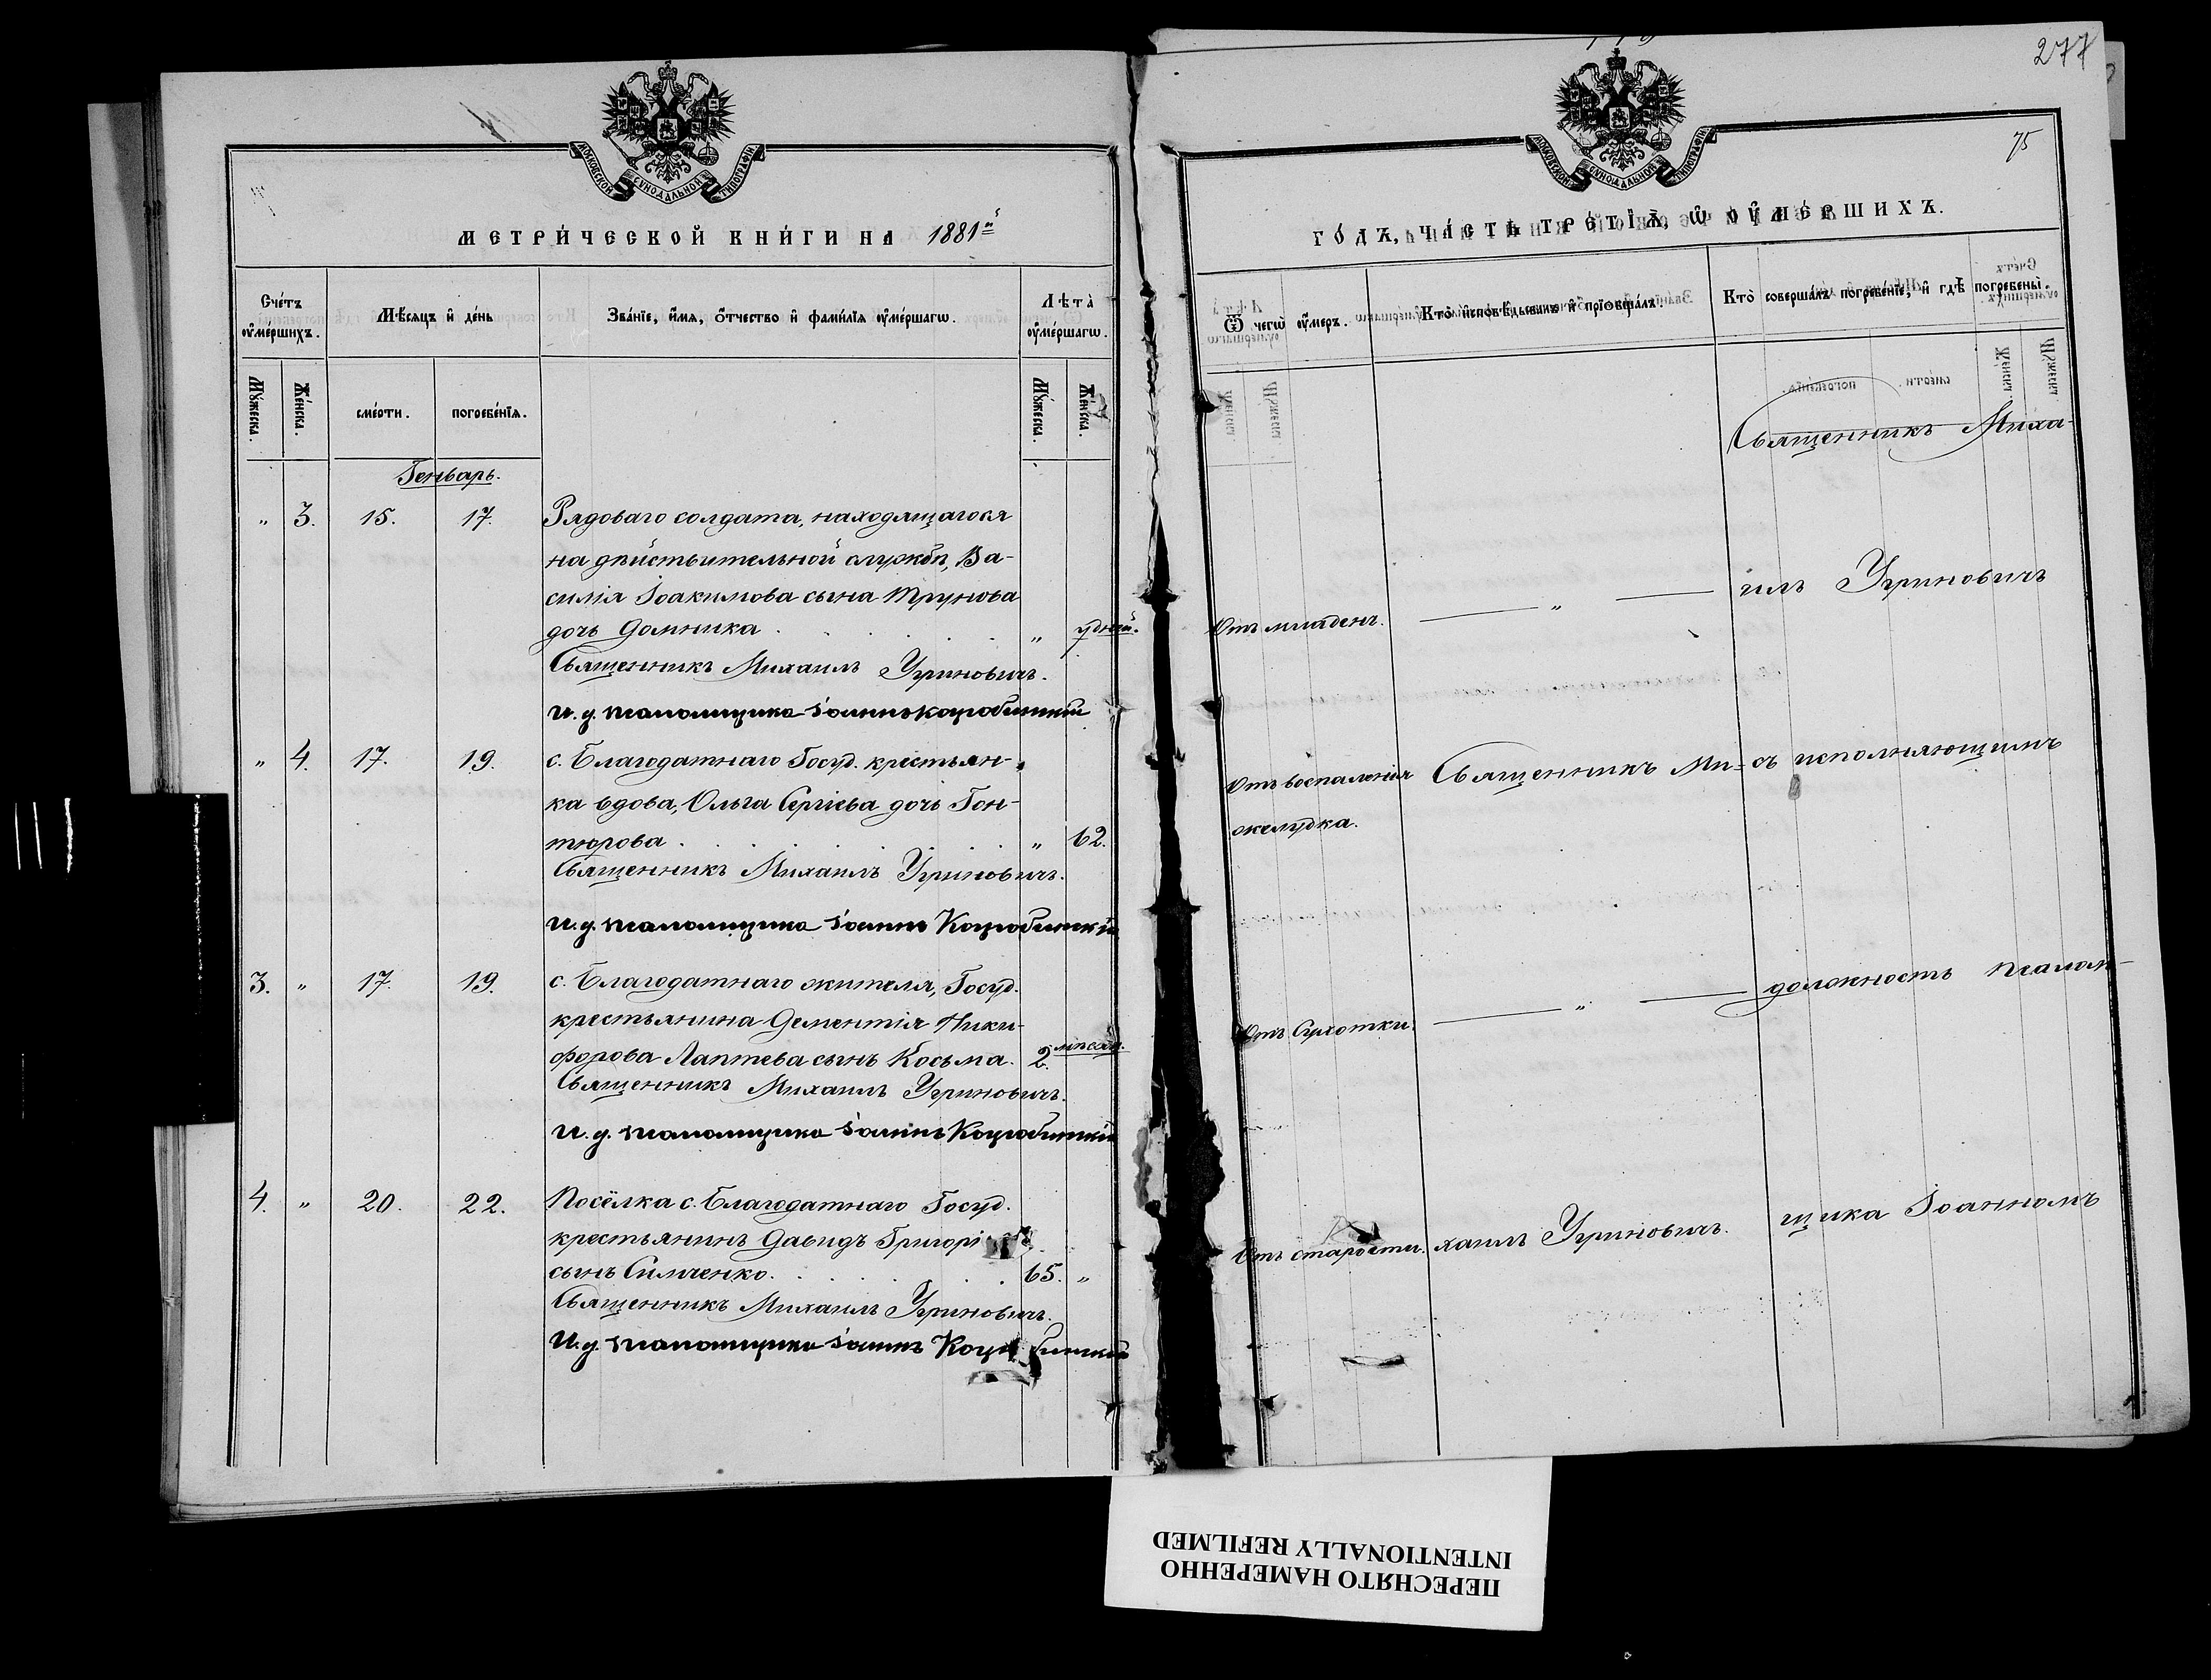 277
75
МОСКОВСКОЙ СѴНОДАЛЬНОЙ ТИПОГРАФІИ
МЕТРИ́ЧЕСКОЙ КНИ́ГИ НА 1881й
Сче́тъ оумершихъ.
Мѣ́сяцъ и день
Зва́нїе, и́мя, о́тчество и фами́лїя оуме́ршагѡ.
Лѣта̀ оуме́ршагѡ.
Мꙋ́жеска.
Же́нска.
сме́рти.
погребе́нїя.
Мꙋ́жеска.
Же́нска.
Генварь.
" 3. 15. 17. Рядоваго солдата, находящагося
на дѣйствительной службѣ, Ва-
силія Іоакимова сына Трунова
дочь Домника . . . . . "
Священникъ Михаилъ Угриновичъ.
И. д. псаломщика Іоаннъ
" 4. 17. 19. с. Благодатнаго Госуд. крестьян-
ка вдова, Ольга Сергіева дочь Гон-
тюрова . . . . . . " 62.
Священникъ Михаилъ Угриновичъ.
И. д. псаломщика Іоаннъ
3. " 17. 19. с. Благодатнаго жителя, Госуд.
крестьянина Дементія Ники-
форова Лаптева сынъ Косьма. 2 мѣсяц.
Священникъ Михаилъ Угриновичъ.
И. д. псаломщика Іоаннъ
4. " 20. 22. Посёлка с. Благодатнаго Госуд.
крестьянинъ Давидъ
сынъ Симченко. . . . . 65. "
Священникъ Михаилъ Угриновичъ.
И. д. псаломщика Іоаннъ
МОСКОВСКОЙ СѴНОДАЛЬНОЙ ТИПОГРАФІИ
ГО́ДЪ, ЧА́СТЬ ТРЕ́ТЇЯ, Ѡ ОУМЕ́РШИХЪ.
Ѿ чегѡ̀ оу́меръ.
Кто̀ исповѣ́дывалъ и прїѡбща́лъ.
Кто̀ соверша́лъ погребе́нїе, и гдѣ̀ погребены̀.
Священникъ Миха-
Отъ младенч. — " — илъ Угриновичъ
Отъ воспаленія Священникъ Ми- съ исполняющимъ
желудка.
Отъ Сухотки. — " — должность псалом-
Отъ старости. хаилъ Угриновичъ. щика Іоанномъ
ПЕРЕСНЯТО НАМЕРЕННО
INTENTIONALLY REFILMED